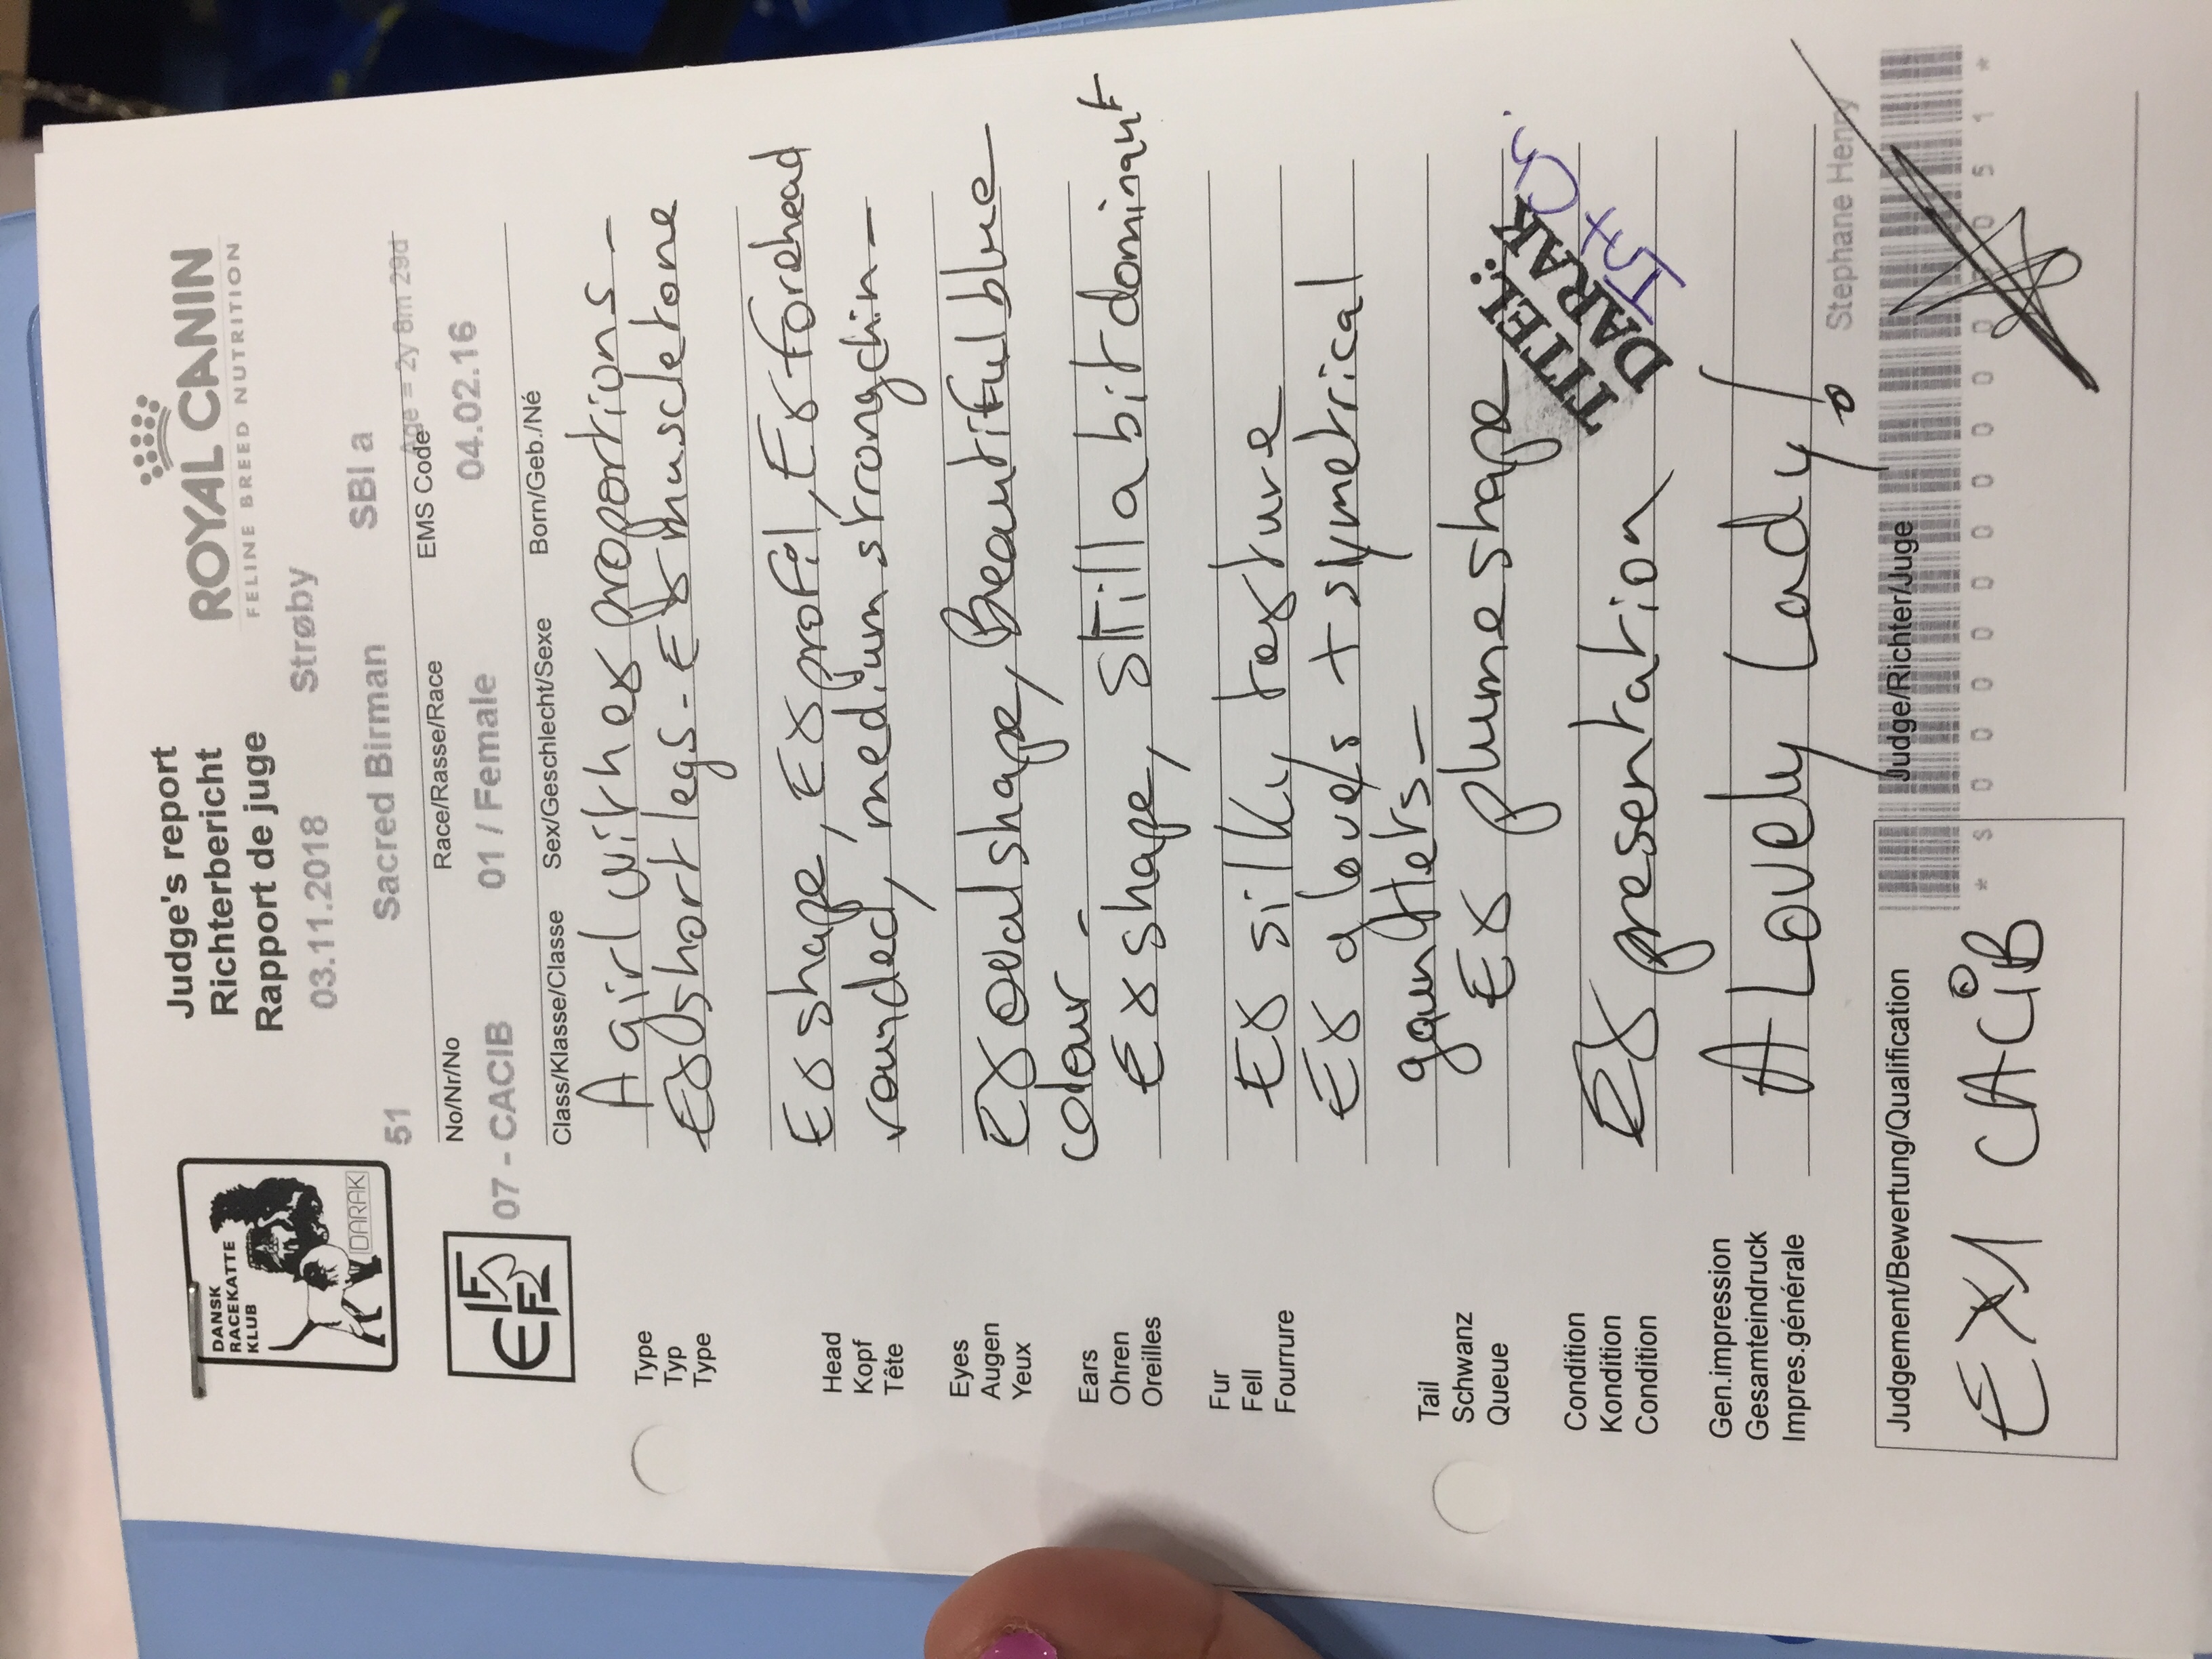 DANSK
RACEKATTE
KLUB
DARAK
Judge's report
Richterbericht
Rapport de juge
ROYAL CANIN
FELINE BREED NUTRITION
03.11.2018 Strøby
51 Sacred Birman SBI a
Age = 2y 8m 29d
No/Nr/No Race/Rasse/Race EMS Code
FIFe
07 - CACIB 01 / Female 04.02.16
Class/Klasse/Classe Sex/Geschlecht/Sexe Born/Geb./Né
Type
Typ
Type
A girl with ex proportions -
Ex short legs - Ex muscletone
Head
Kopf
Tête
Ex shape, Ex profil, Ex forehead
rounded, medium strongchin -
Eyes
Augen
Yeux
Ex oval shape, Beautiful blue
colour -
Ears
Ohren
Oreilles
Ex shape, still a bit dominant
Fur
Fell
Fourrure
Ex silky texture
Ex gloves + symetrical
gauntlets -
Tail
Schwanz
Queue
Ex plume shape
TITEL:
DARAK
Int
Condition
Kondition
Condition
Ex presentation
Gen.impression
Gesamteindruck
Impres.générale
A Lovely Lady!
Stephane Henry
Judgement/Bewertung/Qualification
Judge/Richter/Juge
EX1 CACIB